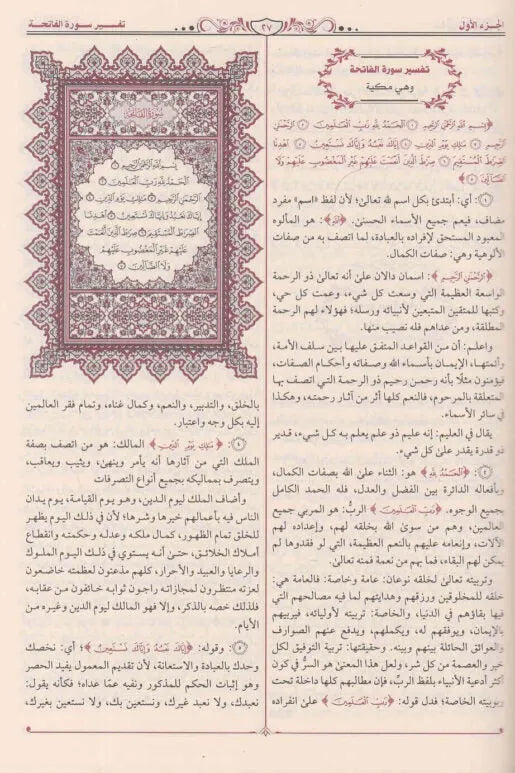 الجزء الأول
٢٧
تفسير سورة الفاتحة
تفسير سورة الفاتحة
وهي مكية
﴿بِسْمِ اللَّهِ الرَّحْمَٰنِ الرَّحِيمِ ۝١ الْحَمْدُ لِلَّهِ رَبِّ الْعَالَمِينَ ۝٢ الرَّحْمَٰنِ
الرَّحِيمِ ۝٣ مَالِكِ يَوْمِ الدِّينِ ۝٤ إِيَّاكَ نَعْبُدُ وَإِيَّاكَ نَسْتَعِينُ ۝٥ اهْدِنَا
الصِّرَاطَ الْمُسْتَقِيمَ ۝٦ صِرَاطَ الَّذِينَ أَنْعَمْتَ عَلَيْهِمْ غَيْرِ الْمَغْضُوبِ عَلَيْهِمْ وَلَا
الضَّالِّينَ ۝٧﴾
﴿١﴾ أي: أبتدئ بكل اسم لله تعالى؛ لأن لفظ «اسم» مفرد
مضاف، فيعم جميع الأسماء الحسنى. ﴿اللَّهِ﴾: هو المألوه
المعبود المستحق لإفراده بالعبادة، لما اتصف به من صفات
الألوهية وهي: صفات الكمال.
﴿الرَّحْمَٰنِ الرَّحِيمِ﴾: اسمان دالان على أنه تعالى ذو الرحمة
الواسعة العظيمة التي وسعت كل شيء، وعمت كل حي،
وكتبها للمتقين المتبعين لأنبيائه ورسله؛ فهؤلاء لهم الرحمة
المطلقة، ومن عداهم فله نصيب منها.
واعلم: أن من القواعد المتفق عليها بين سلف الأمة،
وأئمتها، الإيمان بأسماء الله وصفاته وأحكام الصفات،
فيؤمنون مثلًا بأنه رحمن رحيم ذو الرحمة التي اتصف بها
المتعلقة بالمرحوم، فالنعم كلها أثر من آثار رحمته، وهكذا
في سائر الأسماء.
يقال في العليم: إنه عليم ذو علم يعلم به كل شيء، قدير
ذو قدرة يقدر على كل شيء.
﴿٢﴾ ﴿الْحَمْدُ لِلَّهِ﴾ هو: الثناء على الله بصفات الكمال،
وبأفعاله الدائرة بين الفضل والعدل، فله الحمد الكامل
بجميع الوجوه. ﴿رَبِّ الْعَالَمِينَ﴾ الربُّ: هو المربي جميع
العالمين، وهم من سوى الله بخلقه لهم، وإعداده لهم
الآلات، وإنعامه عليهم بالنعم العظيمة، التي لو فقدوها لم
يمكن لهم البقاء، فما بهم من نعمة فمنه تعالى.
وتربيته تعالى لخلقه نوعان: عامة وخاصة: فالعامة هي:
خلقه للمخلوقين ورزقهم وهدايتهم لما فيه مصالحهم التي
فيها بقاؤهم في الدنيا، والخاصة: تربيته لأوليائه، فيربيهم
بالإيمان، ويوفقهم له، ويكملهم، ويدفع عنهم الصوارف
والعوائق الحائلة بينهم وبينه. وحقيقتها: تربية التوفيق لكل
خير والعصمة من كل شر، ولعل هذا المعنى هو السرُّ في كون
أكثر أدعية الأنبياء بلفظ الربِّ، فإن مطالبهم كلها داخلة تحت
ربوبيته الخاصة؛ فدل قوله: ﴿رَبِّ الْعَالَمِينَ﴾ على انفراده
سورة الفاتحة
بِسْمِ اللَّهِ الرَّحْمَٰنِ الرَّحِيمِ ۝١
الْحَمْدُ لِلَّهِ رَبِّ الْعَالَمِينَ ۝٢
الرَّحْمَٰنِ الرَّحِيمِ ۝٣ مَالِكِ يَوْمِ الدِّينِ ۝٤
إِيَّاكَ نَعْبُدُ وَإِيَّاكَ نَسْتَعِينُ ۝٥ اهْدِنَا
الصِّرَاطَ الْمُسْتَقِيمَ ۝٦ صِرَاطَ الَّذِينَ أَنْعَمْتَ
عَلَيْهِمْ غَيْرِ الْمَغْضُوبِ عَلَيْهِمْ
وَلَا الضَّالِّينَ ۝٧
بالخلق، والتدبير، والنعم، وكمال غناه، وتمام فقر العالمين
إليه بكل وجه واعتبار.
﴿٤﴾ ﴿مَالِكِ يَوْمِ الدِّينِ﴾ المالك: هو من اتصف بصفة
الملك التي من آثارها أنه يأمر وينهى، ويثيب ويعاقب،
ويتصرف بمماليكه بجميع أنواع التصرفات
وأضاف الملك ليوم الدين، وهو يوم القيامة، يوم يدان
الناس فيه بأعمالهم خيرها وشرها؛ لأن في ذلك اليوم يظهر
للخلق تمام الظهور، كمال ملكه وعدله وحكمته وانقطاع
أملاك الخلائق، حتى أنه يستوي في ذلك اليوم الملوك
والرعايا والعبيد والأحرار، كلهم مذعنون لعظمته خاضعون
لعزته منتظرون لمجازاته راجون ثوابه خائفون من عقابه،
فلذلك خصه بالذكر، وإلا فهو المالك ليوم الدين وغيره من
الأيام.
﴿٥﴾ وقوله: ﴿إِيَّاكَ نَعْبُدُ وَإِيَّاكَ نَسْتَعِينُ﴾؛ أي: نخصك
وحدك بالعبادة والاستعانة، لأن تقديم المعمول يفيد الحصر
وهو إثبات الحكم للمذكور ونفيه عمّا عداه؛ فكأنه يقول:
نعبدك، ولا نعبد غيرك، ونستعين بك، ولا نستعين بغيرك،